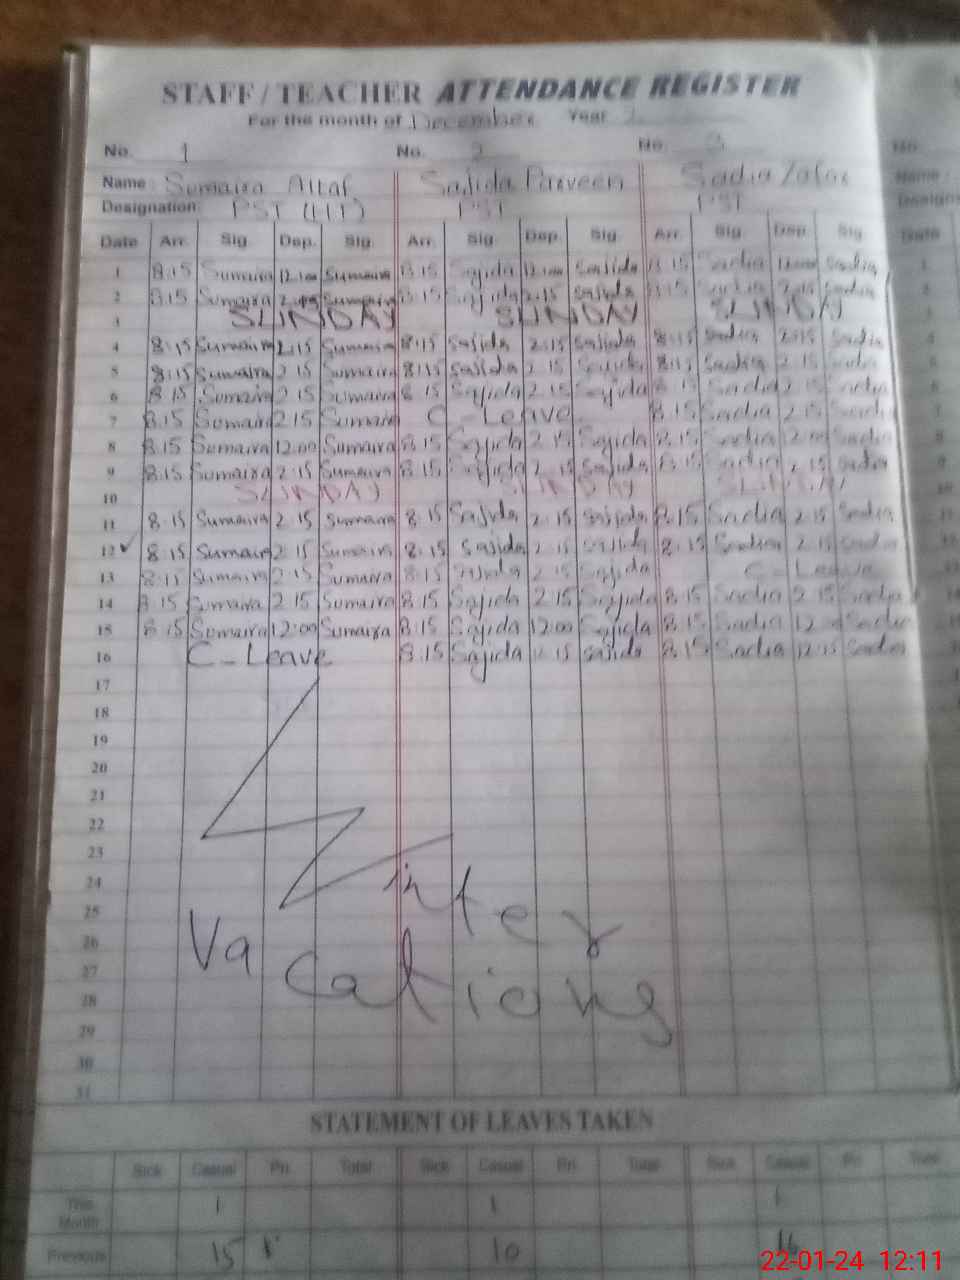 STAFF / TEACHER ATTENDANCE REGISTER
For the month of December Year 2
No. 1 No. 2 No. 3
Name : Sumaira Altaf Sajida Parveen Sadia Zafar Name :
Designation: PST (HT) PST PST
Date Arr. Sig. Dep. Sig. Arr. Sig. Dep. Sig. Arr. Sig. Dep. Sig. Date
1 8:15 Sumaira 12:00 Sumaira 8:15 Sajida 12:00 Sajida 8:15 Sadia 12:00 Sadia
2 8:15 Sumaira Sumaira 8:15 Sajida 2:15 Sajida 8:15 Sadia 2:15 Sadia
3 SUNDAY SUNDAY SUNDAY
4 8:15 Sumaira 2:15 Sumaira 8:15 Sajida 2:15 Sajida 8:15 Sadia 2:15 Sadia
5 8:15 Sumaira 2:15 Sumaira 8:15 Sajida 2:15 Sajida 8:15 Sadia 2:15 Sadia
6 8:15 Sumaira 2:15 Sumaira 8:15 Sajida 2:15 Sajida 8:15 Sadia 2:15 Sadia
7 8:15 Sumaira 2:15 Sumaira C-Leave 8:15 Sadia 2:15 Sadia
8 8:15 Sumaira 12:00 Sumaira 8:15 Sajida 2:15 Sajida 8:15 Sadia 12:00 Sadia
9 8:15 Sumaira 2:15 Sumaira 8:15 Sajida 2:15 Sajida 8:15 Sadia 2:15 Sadia
10 SUNDAY SUNDAY SUNDAY
11 8:15 Sumaira 2:15 Sumaira 8:15 Sajida 2:15 Sajida 8:15 Sadia 2:15 Sadia
12 ✓ 8:15 Sumaira 2:15 Sumaira 8:15 Sajida 2:15 Sajida 8:15 Sadia 2:15 Sadia
13 8:15 Sumaira 2:15 Sumaira 8:15 Sajida 2:15 Sajida C-Leave
14 8:15 Sumaira 2:15 Sumaira 8:15 Sajida 2:15 Sajida 8:15 Sadia 2:15 Sadia
15 8:15 Sumaira 12:00 Sumaira 8:15 Sajida 12:00 Sajida 8:15 Sadia 12:00 Sadia
16 C-Leave 8:15 Sajida 12:15 Sajida 8:15 Sadia 12:15 Sadia
17
18
19
20
21
22
23
24 Winter
25
26 Vacations
27
28
29
30
31
STATEMENT OF LEAVES TAKEN
Sick Casual Pri. Total Sick Casual Pri. Total Sick Casual Pri Total
This Month 1 1 1
Previous 15 10 16
22-01-24 12:11